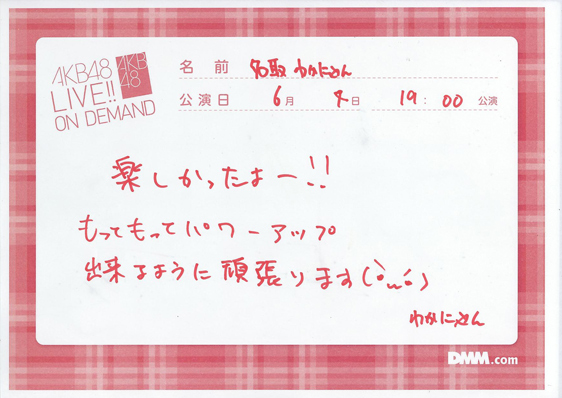 AKB48
LIVE!!
ON DEMAND
AKB
48
名前 名取 わかにゃん
公演日 6月 8日 19:00 公演
楽しかったよー!!
もってもってパワーアップ
出来るように頑張ります(`・ω・´)
わかにゃん
DMM.com